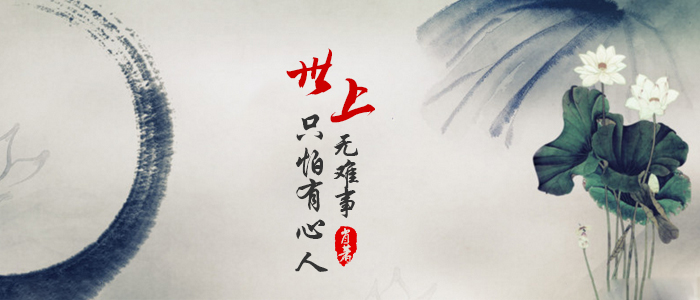 世上
无难事
只怕有心人
肖著